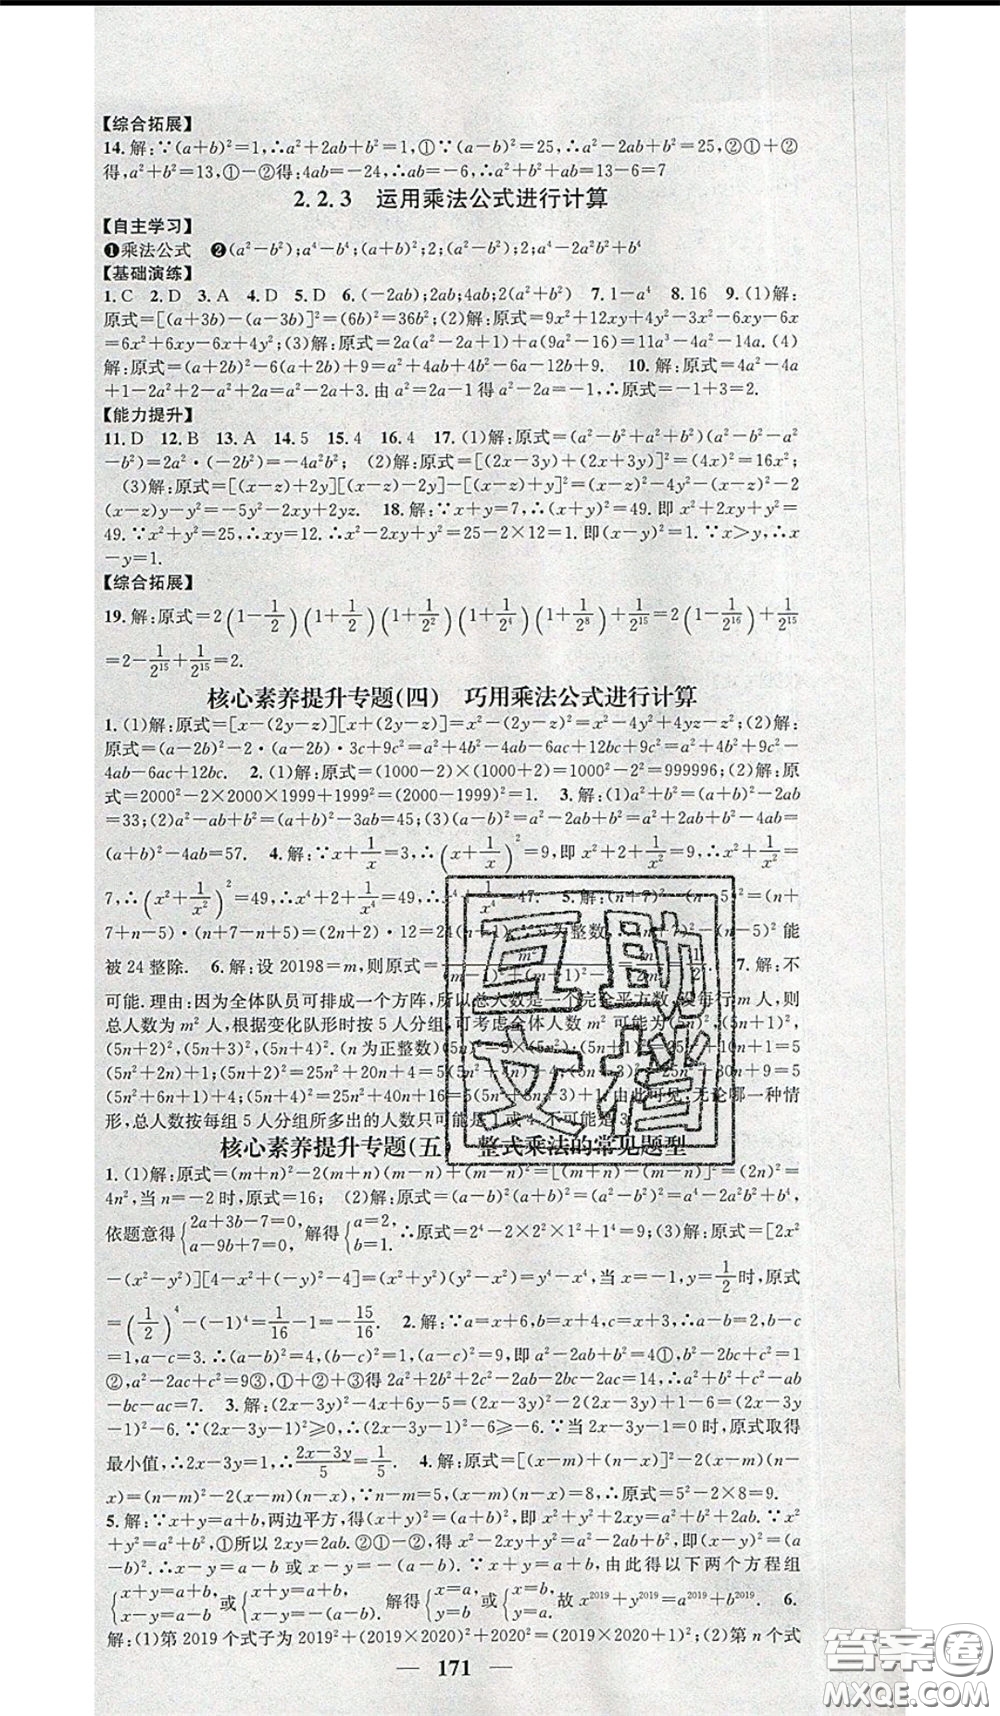 【综合拓展】
14.解:∵(a+b)²=1,∴a²+2ab+b²=1,①∵(a-b)²=25,∴a²-2ab+b²=25,②①+②
得,a²+b²=13,①-②得:4ab=-24,∴ab=-6,∴a²+b²+ab=13-6=7
2.2.3 运用乘法公式进行计算
【自主学习】
❶乘法公式 ❷(a²-b²);a⁴-b⁴;(a²+b²)²;2;(a²-b²);2;a⁴-2a²b²+b⁴
【基础演练】
1.C 2.D 3.A 4.D 5.D 6.(-2ab);2ab;4ab;2(a²+b²) 7.1-a⁴ 8.16 9.(1)解:
原式=[(a+3b)-(a-3b)]²=(6b)²=36b²;(2)解:原式=9x²+12xy+4y²-3x²-6xy-6x
=6x²+12xy-6xy-6x+4y²;(3)解:原式=2a(a²-2a+1)+a(9a²-16)=11a³-4a²-14a.(4)
解:原式=(a+2b)²-6(a+2b)+9=a²+4ab+4b²-6a-12b+9. 10.解:原式=4a²-4a
+1-2a²+2+a²-2+a²=2a²-2a+3.由a²=2a-1得a²-2a=-1,∴原式=-1+3=2.
【能力提升】
11.D 12.B 13.A 14.5 15.4 16.4 17.(1)解:原式=(a²-b²+a²+b²)(a²-b²-a²
-b²)=2a²·(-2b²)=-4a²b²; (2)解:原式=[(2x-3y)+(2x+3y)]²=(4x)²=16x²;
(3)解:原式=[(x-z)+2y][(x-z)-2y]-[(x-z)+y]²=(x-z)²-4y²-(x-z)²-2
(x-z)y-y²=-5y²-2xy+2yz. 18.解:∵x+y=7,∴(x+y)²=49.即x²+2xy+y²=
49.∵x²+y²=25,∴xy=12.∴x²-2xy+y²=25-2×12=1.即(x-y)²=1.∵x>y,∴x
-y=1.
【综合拓展】
19.解:原式=2(1-1/2)(1+1/2)(1+1/2²)(1+1/2⁴)(1+1/2⁸)+1/2¹⁵=2(1-1/2¹⁶)+1/2¹⁵
=2-1/2¹⁵+1/2¹⁵=2.
核心素养提升专题(四) 巧用乘法公式进行计算
1.(1)解:原式=[x-(2y-z)][x+(2y-z)]=x²-(2y-z)²=x²-4y²+4yz-z²;(2)解:
原式=(a-2b)²-2·(a-2b)·3c+9c²=a²+4b²-4ab-6ac+12bc+9c²=a²+4b²+9c²-
4ab-6ac+12bc. 2.(1)解:原式=(1000-2)×(1000+2)=1000²-2²=999996;(2)解:原
式=2000²-2×2000×1999+1999²=(2000-1999)²=1. 3.解:(1)a²+b²=(a+b)²-2ab
=33;(2)a²-ab+b²=(a+b)²-3ab=45;(3)(a-b)²=a²-2ab+b²=a²+2ab+b²-4ab=
(a+b)²-4ab=57. 4.解:∵x+1/x=3,∴(x+1/x)²=9,即x²+2+1/x²=9,∴x²+1/x²=
7,∴(x²+1/x²)²=49,∴x⁴+2+1/x⁴=49,∴x⁴+1/x⁴=47. 5.解:(n+7)²-(n-5)²=(n+
7+n-5)·(n+7-n+5)=(2n+2)·12=24(n+1),∵n为整数,∴(n+7)²-(n-5)²能
被24整除. 6.解:设20198=m,则原式= 7.解:不
可能.理由:因为全体队员可排成一个方阵,所以总人数是一个完全平方数,设每行m人,则
总人数为m²人,根据变化队形时按5人分组,可考虑全体人数m²可能为(5n)²,(5n+1)²,
(5n+2)²,(5n+3)²,(5n+4)².(n为正整数)(5n)²=5(5n²),(5n+1)²=25n²+10n+1=5
(5n²+2n)+1,(5n+2)²=25n²+20n+4=5(5n²+4n)+4,(5n+3)²=25n²+30n+9=5
(5n²+6n+1)+4,(5n+4)²=25n²+40n+16=5(5n²+8n+3)+1,由此可见:无论哪一种情
形,总人数按每组5人分组所多出的人数只可能是1或4,不可能是3.
核心素养提升专题(五) 整式乘法的常见题型
1.(1)解:原式=(m+n)²-2(m+n)(m-n)+(m-n)²=[(m+n)-(m-n)]²=(2n)²=
4n²,当n=-2时,原式=16; (2)解:原式=(a-b)²(a+b)²=(a²-b²)²=a⁴-2a²b²+b⁴,
依题意得{2a+3b-7=0, a-9b+7=0, 解得{a=2, b=1. ∴原式=2⁴-2×2²×1²+1⁴=9;(3)解:原式=[2x²
-(x²-y²)][4-x²+(x²-y²)-4]=(x²+y²)(-x²+...)=y⁴-x⁴,当x=-1,y=1/2时,原式
=(1/2)⁴-(-1)⁴=1/16-1=-15/16. 2.解:∵a=x+6,b=x+4,c=x+3,∴a-b=2,b-c
=1,a-c=3.∴(a-b)²=4,(b-c)²=1,(a-c)²=9,即a²-2ab+b²=4①,b²-2bc+c²=1
②,a²-2ac+c²=9③,①+②+③得2a²+2b²+2c²-2ab-2bc-2ac=14,∴a²+b²+c²-ab
-bc-ac=7. 3.解:(2x-3y)²-4x+6y-5=(2x-3y)²-2(2x-3y)+1-6=(2x-3y
-1)²-6.∵(2x-3y-1)²≥0,∴(2x-3y-1)²-6≥-6.∵当2x-3y-1=0时,原式取得
最小值,∴2x-3y=1,∴(2x-3y)/5=1/5. 4.解:原式=[(x-m)+(n-x)]²-2(x-m)(n
-x)=(n-m)²-2(x-m)(n-x),∵n-m=5,(x-m)(n-x)=8,∴原式=5²-2×8=9.
5.解:∵x+y=a+b,两边平方,得(x+y)²=(a+b)²,即x²+2xy+y²=a²+b²+2ab.∵x²
+y²=a²+b²,①所以2xy=2ab.②①-②,得x²+y²-2xy=a²-2ab+b²,即(x-y)²=(a-
b)².∴x-y=a-b或x-y=-(a-b).∵x+y=a+b,由此得以下两个方程组
{x+y=a+b, x-y=a-b 或{x+y=a+b, x-y=-(a-b). 解得{x=a, y=b 或{x=b, y=a. 故x²⁰¹⁹+y²⁰¹⁹=a²⁰¹⁹+b²⁰¹⁹. 6.
解:(1)第2019个式子为2019²+(2019×2020)²+2020²=(2019×2020+1)²;(2)第n个式
— 171 —
互助
文档
答案圈
MXQE.COM